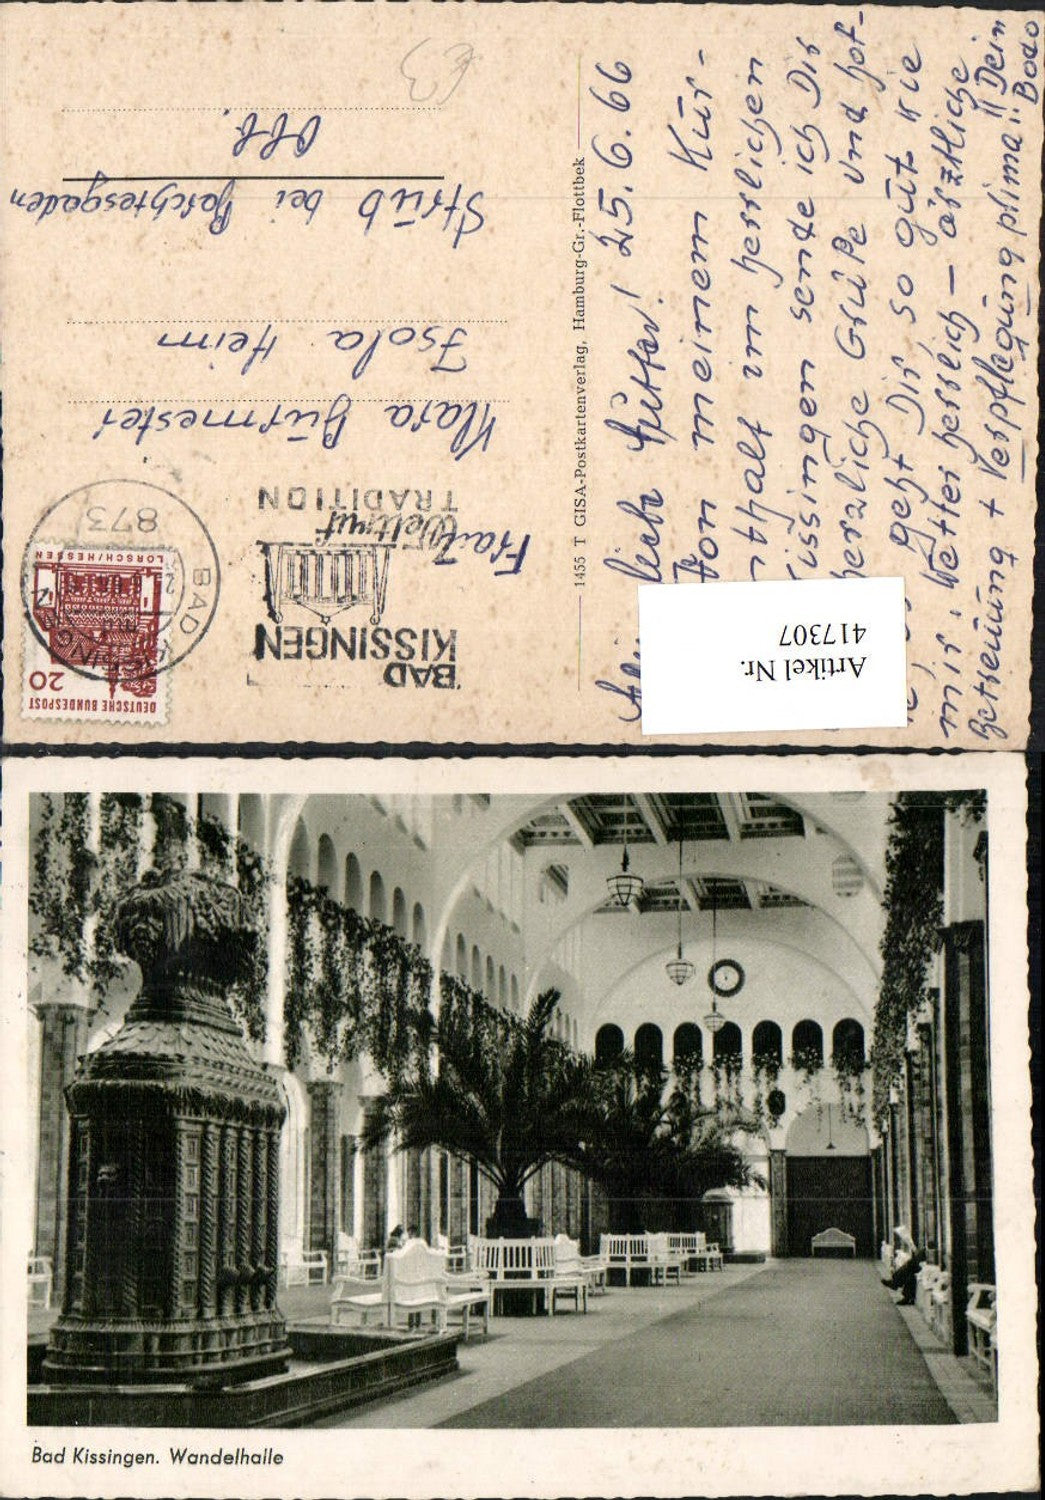 BAD
KISSINGEN
Weltruf
TRADITION
DEUTSCHE BUNDESPOST
20
LORSCH/HESSEN
BAD KISSINGEN
873
Frau
Klara Burmester
Isola Heim
Strub bei Berchtesgaden
Obb.
€3
1455 T GISA-Postkartenverlag, Hamburg-Gr.-Flottbek
liebe Mutter! 25.6.66
Von meinem Kur-
im herrlichen
Kissingen sende ich Dir
herzliche Grüße und hof-
geht Dir so gut wie
mir. Wetter herrlich – ärztliche
Betreuung + Verpflegung prima!! Dein
Bodo
Artikel Nr.
417307
Bad Kissingen. Wandelhalle